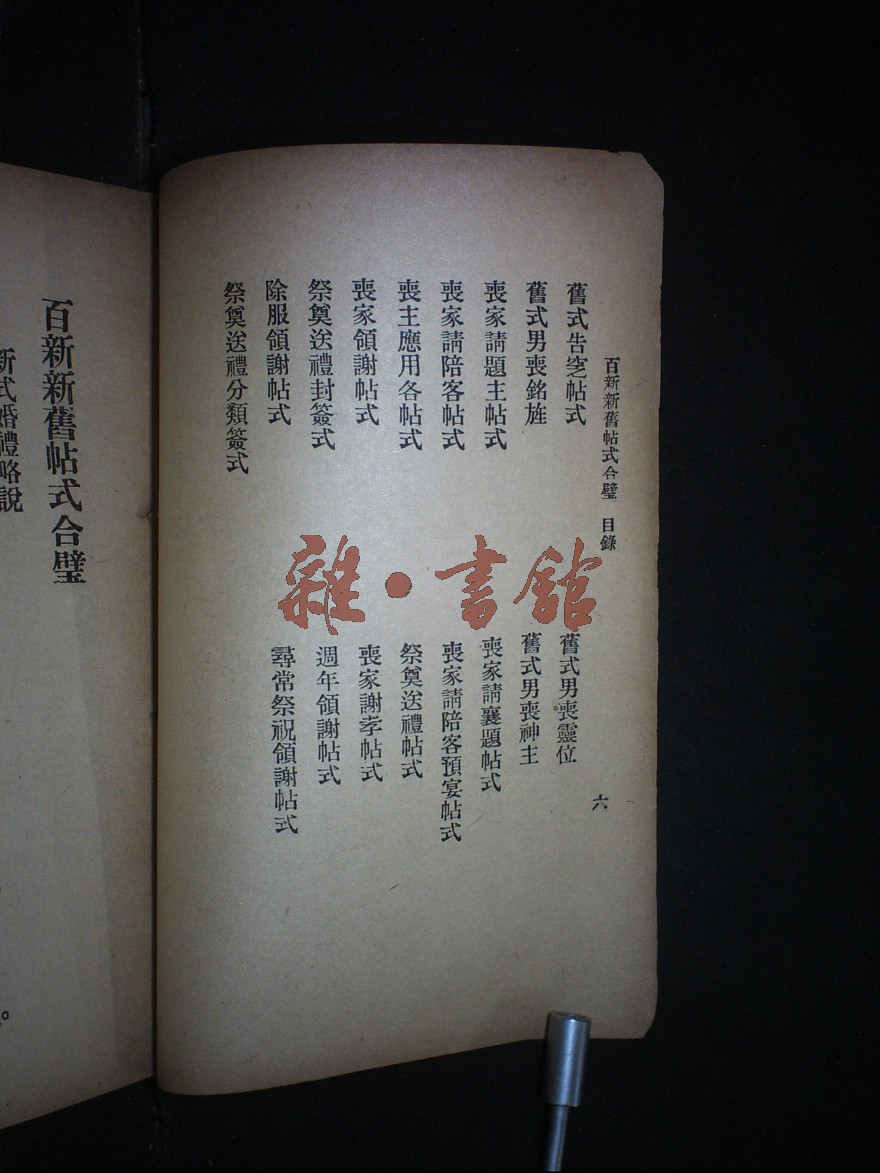 百新新舊帖式合璧 目錄
六
舊式告窆帖式
舊式男喪靈位
舊式男喪銘旌
舊式男喪神主
喪家請題主帖式
喪家請襄題帖式
喪家請陪客帖式
喪家請陪客預宴帖式
喪主應用各帖式
祭奠送禮帖式
喪家領謝帖式
喪家謝孝帖式
祭奠送禮封簽式
週年領謝帖式
除服領謝帖式
尋常祭祝領謝帖式
祭奠送禮分類簽式
雜·書館
百新新舊帖式合璧
新式婚禮略說